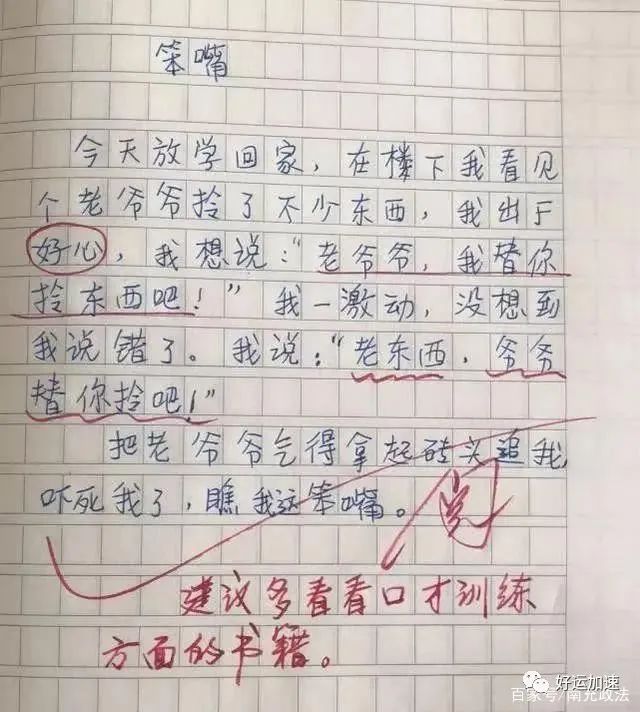 笨嘴
今天放学回家，在楼下我看见
个老爷爷拎了不少东西，我出于
好心，我想说："老爷爷，我替你
拎东西吧！"我一激动，没想到
我说错了。我说："老东西，爷爷
替你拎吧！"
把老爷爷气得拿起砖头追我
吓死我了，瞧我这笨嘴。
阅
建议多看看口才训练
方面的书籍。
好运加速
百家号/南充政法